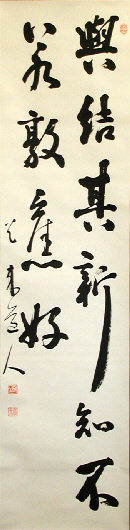 與結其新知不
若敦舊好
道人